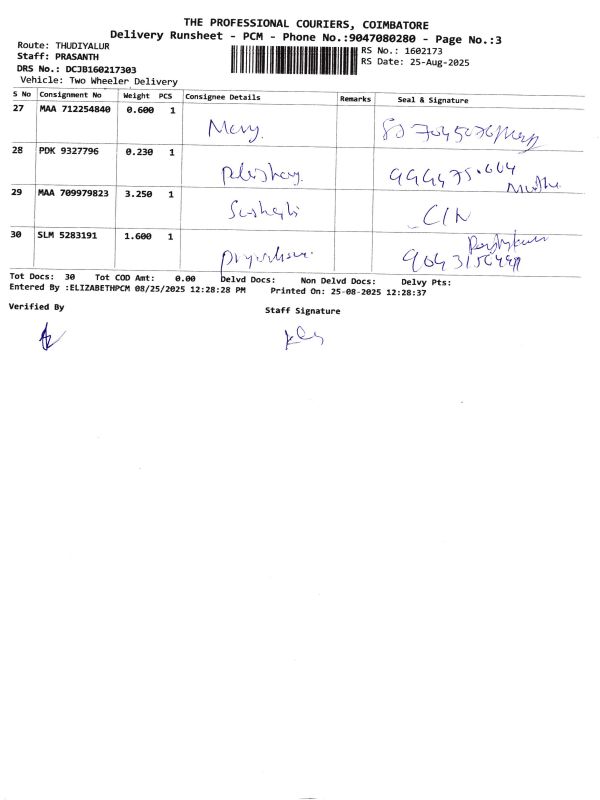 THE PROFESSIONAL COURIERS, COIMBATORE
Delivery Runsheet - PCM - Phone No.:9047080280 - Page No.:3
Route: THUDIYALUR
Staff: PRASANTH
DRS No.: DCJB160217303
Vehicle: Two Wheeler Delivery
RS No.: 1602173
RS Date: 25-Aug-2025
S No Consignment No Weight PCS Consignee Details Remarks Seal & Signature
27 MAA 712254840 0.600 1
Mery.
28 PDK 9327796 0.230 1
29 MAA 709979823 3.250 1
C/N
30 SLM 5283191 1.600 1
Tot Docs: 30 Tot COD Amt: 0.00 Delvd Docs: Non Delvd Docs: Delvy Pts:
Entered By :ELIZABETHPCM 08/25/2025 12:28:28 PM Printed On: 25-08-2025 12:28:37
Verified By
Staff Signature